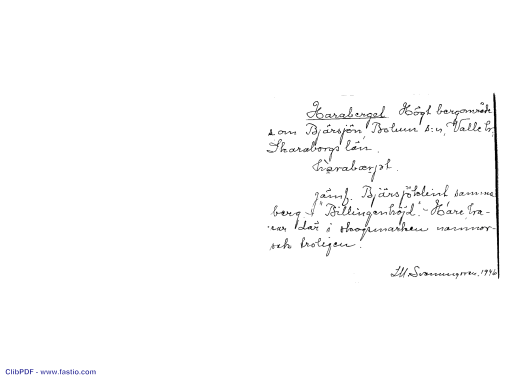 Haraberget Högt bergområde
s. om Bjärsjön, Bolum s:n, Valle hd,
Skaraborgs län.
hàrabærjət.
Jämf. Bjärsjöklint samma
berg - "Billingenhöjd". - Hare, ha-
rar där i skogsmarken namnor-
sak troligen.
1946
ClibPDF - www.fastio.com